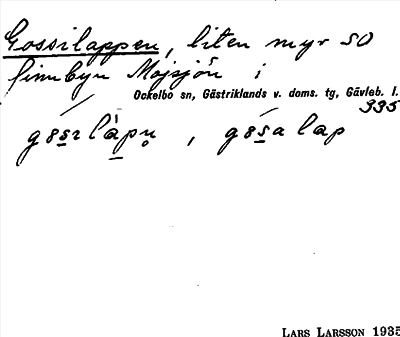 Gossilappen, liten myr SO
finnbyn Mojsjön i
Ockelbo sn, Gästriklands v. doms. tg, Gävleb. l.
335
LARS LARSSON 1935